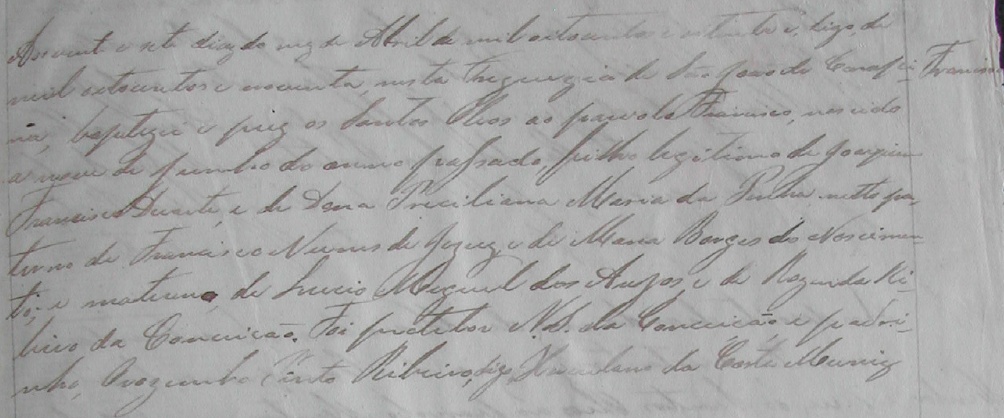 As vinte e sete dias do mez de Abril de mil oitocentos e oitenta e, digo de
mil oitocentos e noventa nesta Freguezia de São João do Carafi- Francisco
na, baptizei e puz os Santos Oleos ao parvolo Francisco, nascido
a nove de Junho do anno passado, filho legitimo de Joaquim
Francisco Duarte, e de Dona Preciliana Maria da Penha netto pa-
terno de Francisco Nunes de Jezuz e de Maria Borges do Nascimen-
to; e materno, de Lucio Miguel dos Anjos, e de Rozenda Ri-
beiro da Conceição. Foi protetora N. S. da Conceição e padri-
nho, Pinto Ribeiro, digo, da Costa Muniz